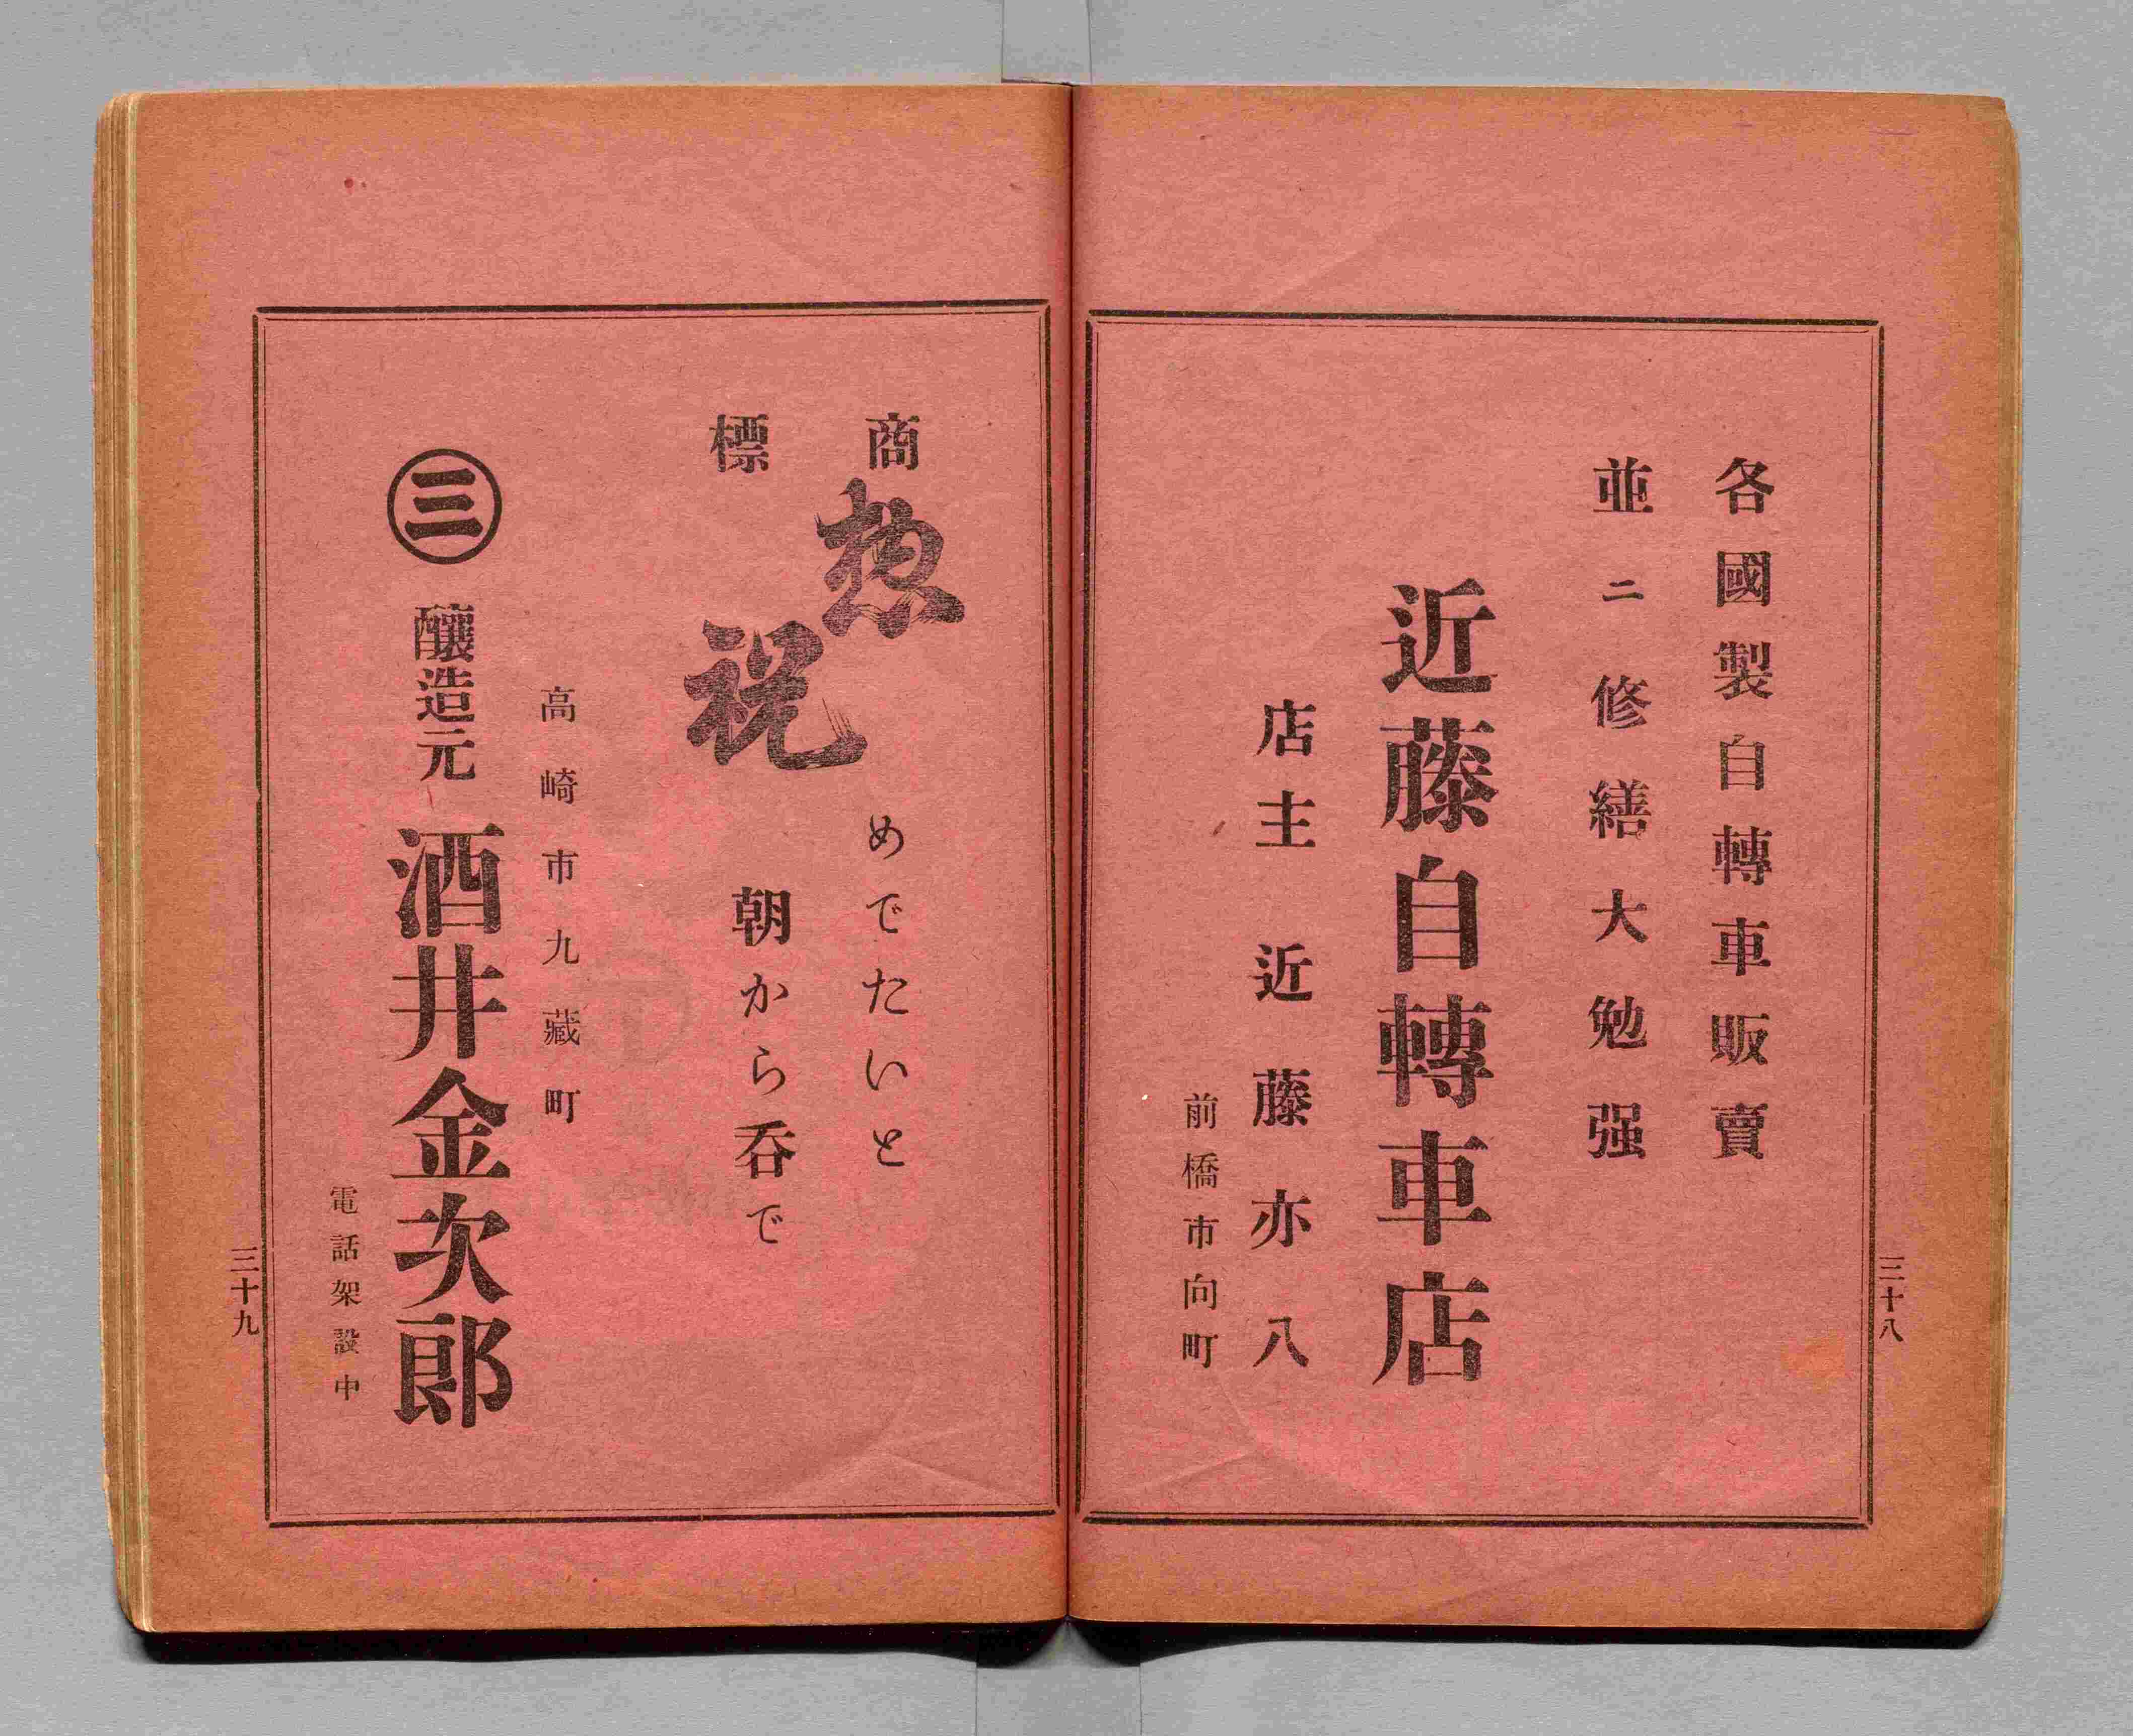 各國製自轉車販賣
並ニ修繕大勉强
近藤自轉車店
店主 近藤亦八
前橋市向町
三十八
商標
惣祝
めでたいと
朝から呑で
高崎市九藏町
㊂ 釀造元 酒井金次郎
電話架設中
三十九